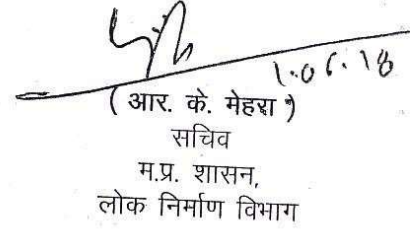 1.06.18
( आर. के. मेहरा )
सचिव
म.प्र. शासन,
लोक निर्माण विभाग